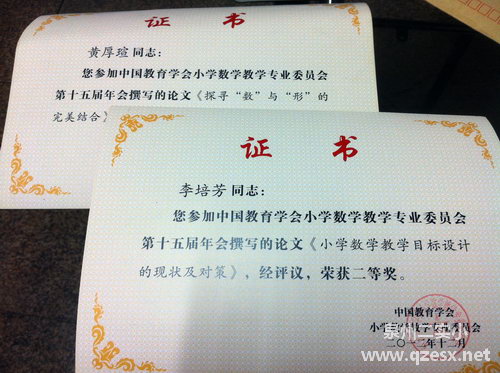 证 书
黄厚瑄同志：
您参加中国教育学会小学数学教学专业委员会
第十五届年会撰写的论文《探寻“数”与“形”的
完美结合》
证 书
李培芳同志：
您参加中国教育学会小学数学教学专业委员会
第十五届年会撰写的论文《小学数学教学目标设计
的现状及对策》，经评议，荣获二等奖。
中国教育学会
小学数学教学专业委员会
二〇一二年十二月
泉州三实小
www.qzesx.net